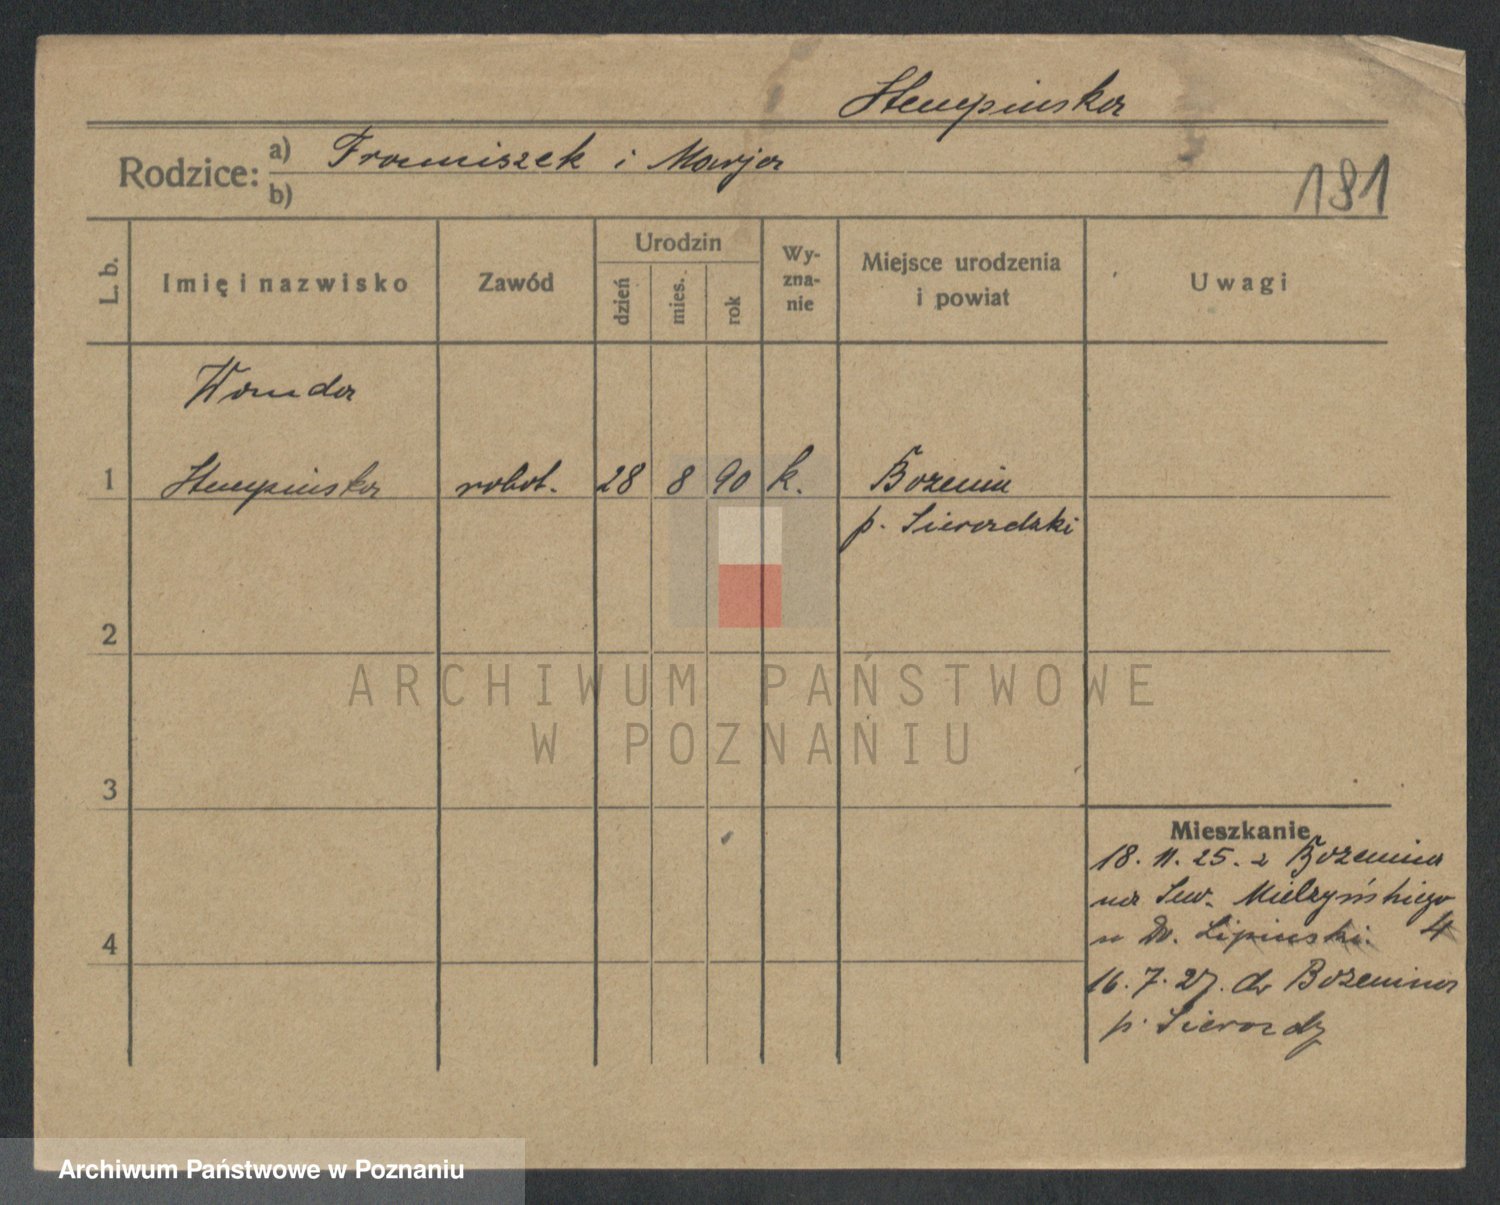 Stempinska
Rodzice: a) Franciszek i Marja
b)
181
L. b.
Imię i nazwisko
Zawód
Urodzin
dzień
mies.
rok
Wy-
zna-
nie
Miejsce urodzenia
i powiat
Uwagi
Wanda
1 Stempinska robot. 28 8 90 k. Bożenin
p. Sieradzki
2
3
4
Mieszkanie
18. 11. 25. z Bożenina
na Sew. Mielzyńskiego
4
u Lipinski.
16. 7. 27. do Bożenina
p. Sieradz
ARCHIWUM PAŃSTWOWE
W POZNANIU
Archiwum Państwowe w Poznaniu